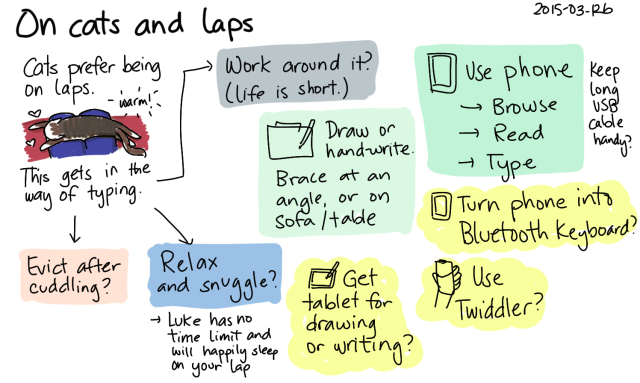 On cats and laps
2015-03-12b
Cats prefer being
on laps.
warm!
This gets in the
way of typing.
Evict after
cuddling?
Relax
and snuggle?
→ Luke has no
time limit and
will happily sleep
on your lap
Work around it?
(life is short.)
Draw or
hand-write.
Brace at an
angle, or on
sofa/table
Get
tablet for
drawing
or writing?
Use phone
→ Browse
→ Read
→ Type
Keep
long
USB
cable
handy?
Turn phone into
Bluetooth Keyboard?
Use
Twiddler?